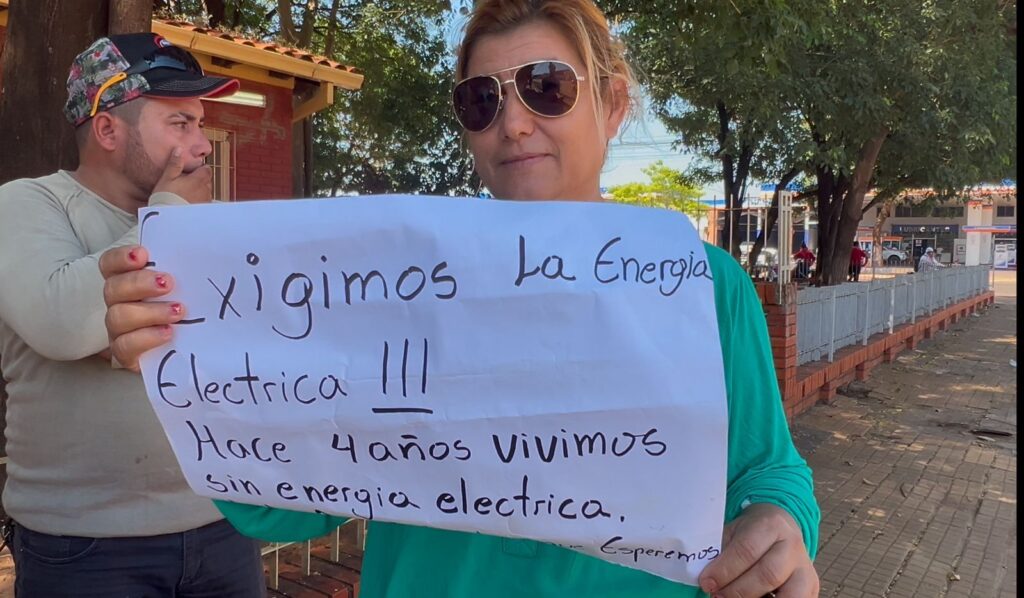 Exigimos La Energia
Electrica !!!
Hace 4 años vivimos
sin energia electrica.
Esperemos